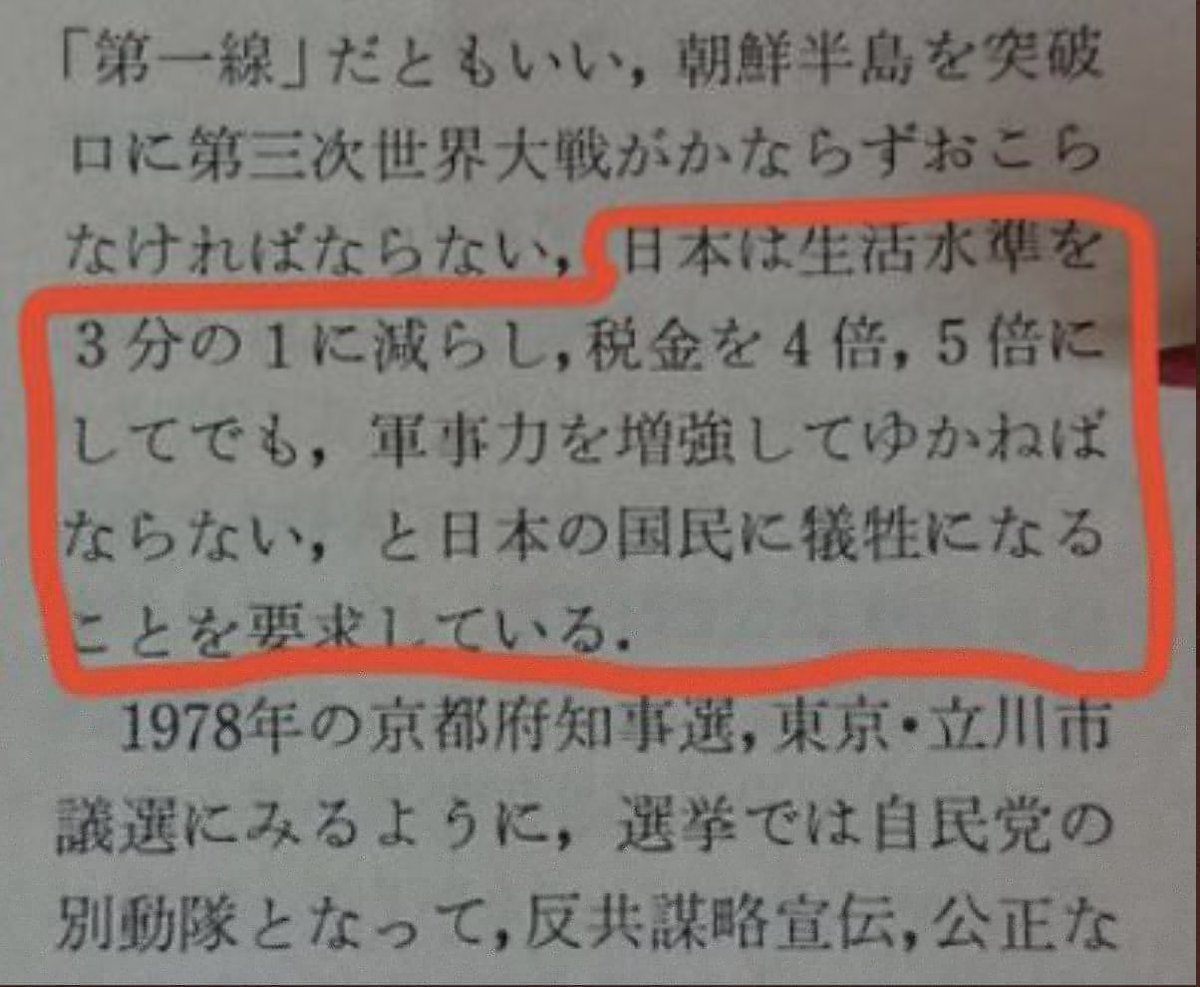 「第一線」だともいい，朝鮮半島を突破
口に第三次世界大戦がかならずおこら
なければならない，日本は生活水準を
3分の1に減らし，税金を4倍，5倍に
してでも，軍事力を増強してゆかねば
ならない，と日本の国民に犠牲になる
ことを要求している．
1978年の京都府知事選，東京・立川市
議選にみるように，選挙では自民党の
別動隊となって，反共謀略宣伝，公正な